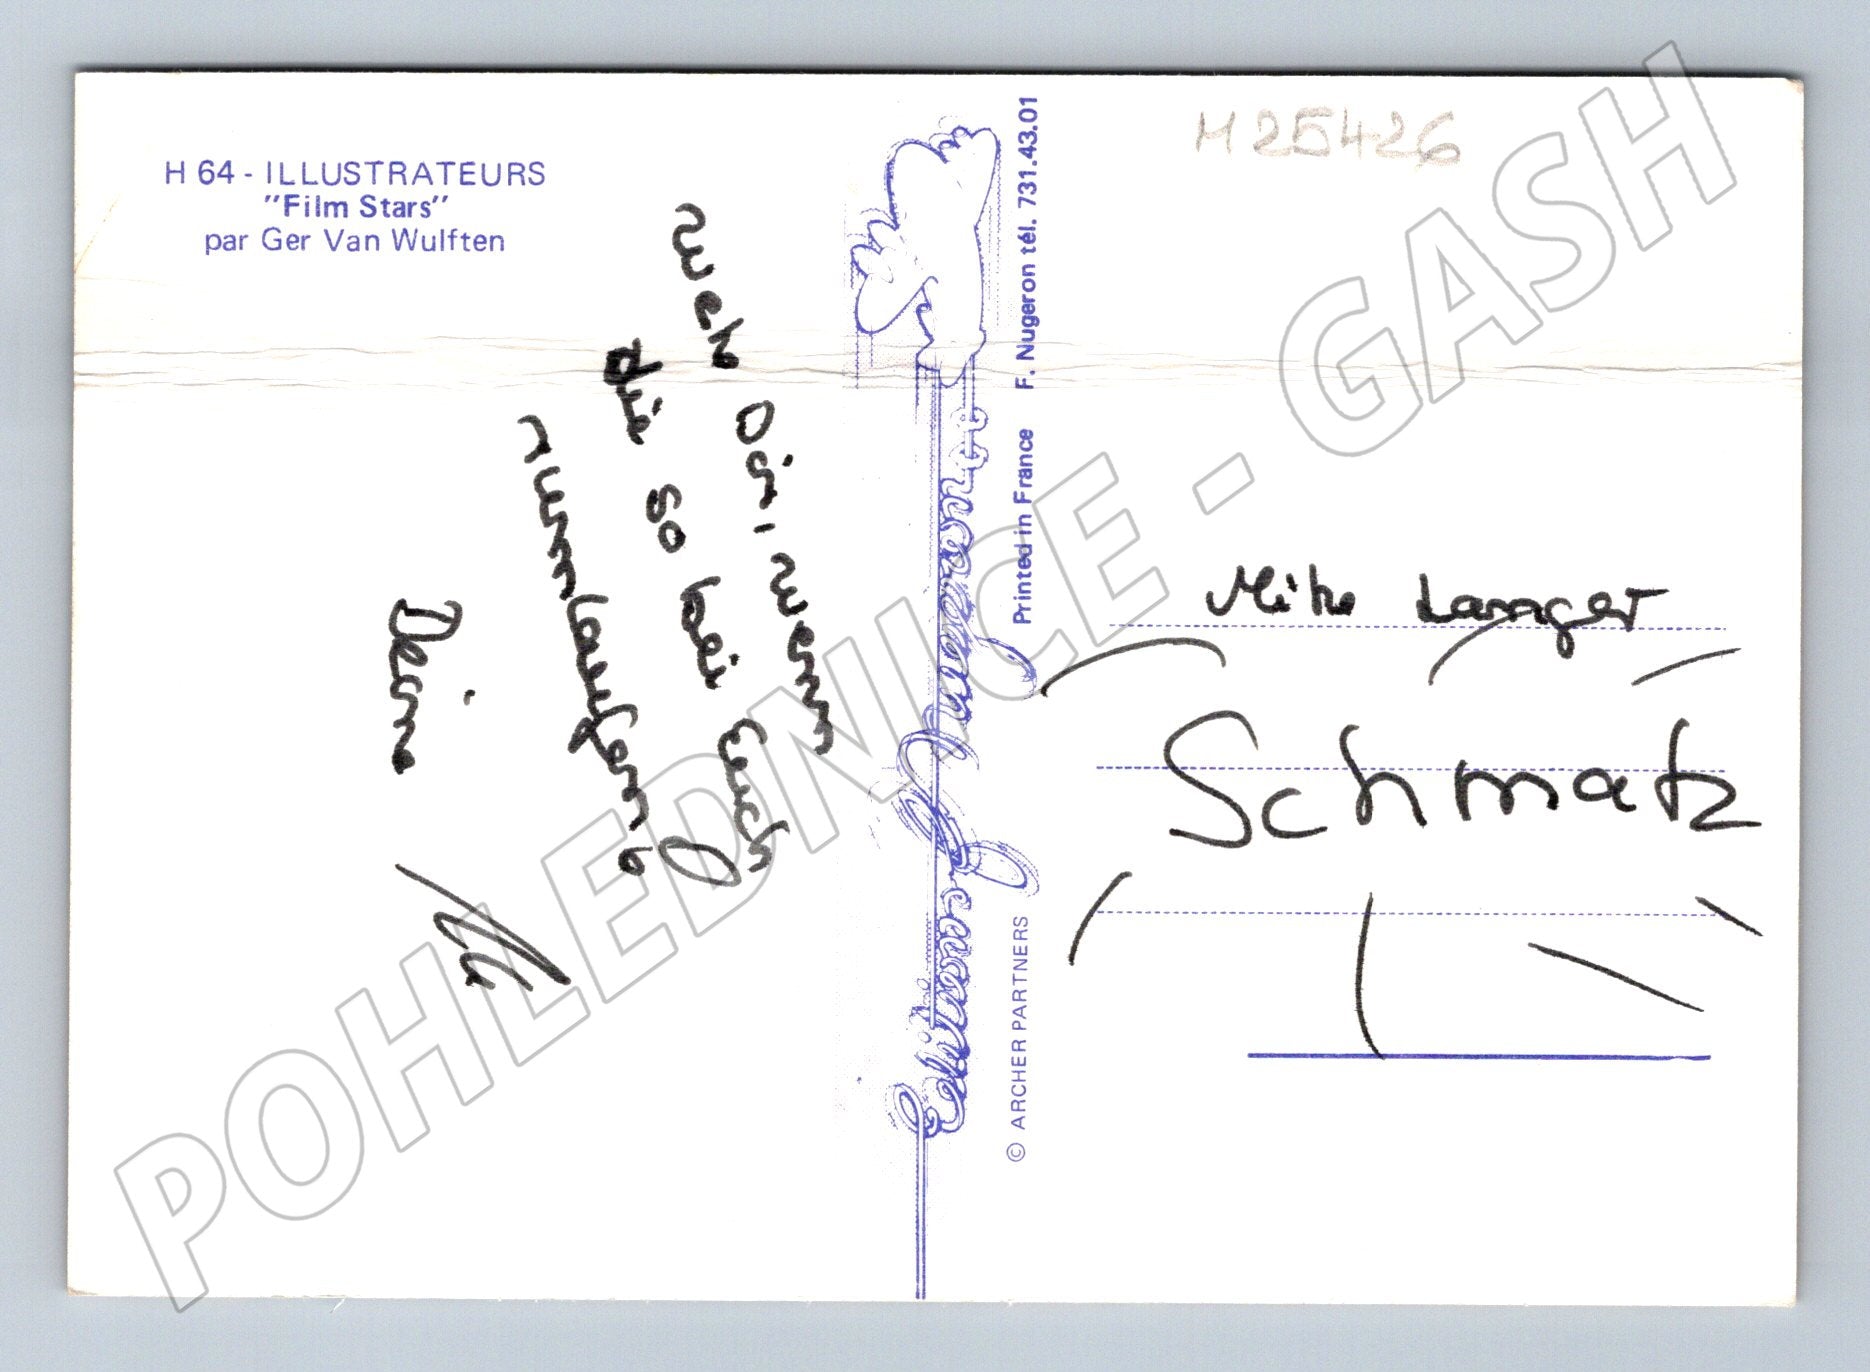 H 64 - ILLUSTRATEURS
"Film Stars"
par Ger Van Wulften
weh Dir, wenn
Du so bei Euch
rumlaufen
Deine
F. Nugeron tél. 731.43.01
Printed in France
© ARCHER PARTNERS
M25426
Mike Langer
Schmatz
POHLEDNICE - GASH